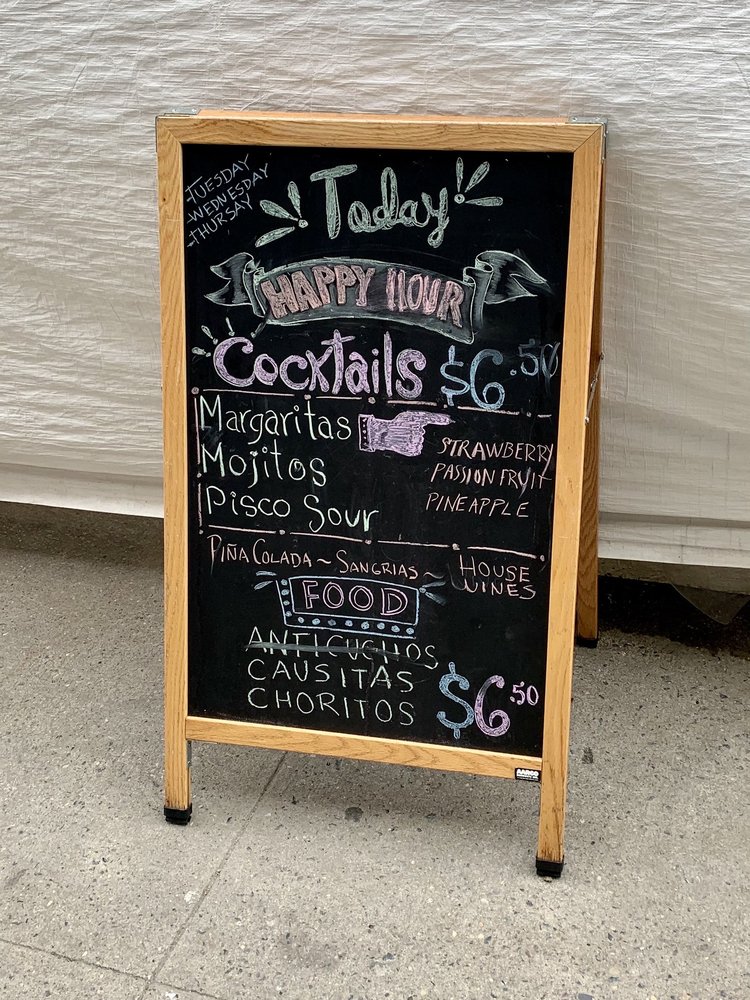 -TUESDAY
-WEDNESDAY
-THURSAY
Today
HAPPY HOUR
Cocktails $6.50
Margaritas
Mojitos
Pisco Sour
STRAWBERRY
PASSION FRUIT
PINEAPPLE
PIÑA COLADA ~ SANGRIAS ~ HOUSE WINES
FOOD
ANTICUCHOS
CAUSITAS
CHORITOS
$6.50
AARCO